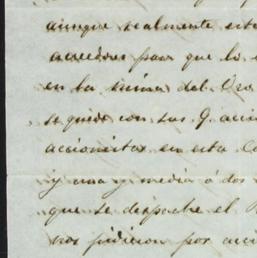 aunque realmente este
acredores para que lo
en la mina del Oro
se quede con sus 9 acci
accionistas en esta C
y una y media á dos
que se despache el
nos pidieron por acci